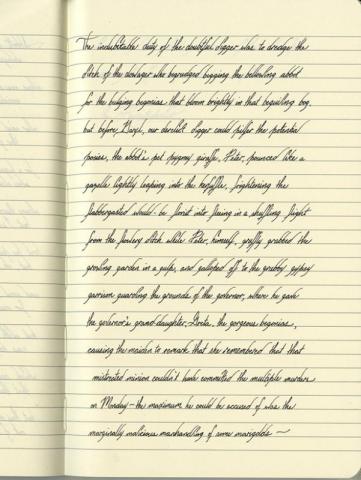 The indubitable duty of the doubtful digger was to dredge the
ditch of the dowager who begrudged begging the bellowing abbot
for the bulging begonias that bloom brightly in that beguiling bog.
but before, Basil, our derelict digger could pilfer the potential
posies, the abbot's pet pygmy giraffe, Peter, pounced like a
gazelle lightly leaping into the kerfuffle, frightening the
flabbergasted would-be florist into fleeing in a shuffling flight
from the flowery ditch while Peter, himself, gruffly grabbed the
growling garden in a gulp, and galloped off to the grubby gypsy
guarding the grounds of the governor, where he gave
the governor's grand-daughter, Greta, the gorgeous begonias,
causing the maiden to remark that she remembered that that
mistreated minion couldn't have committed the multiple murders
on Monday - the maximum he could be accused of was the
marginally malicious manhandling of some marigolds ~